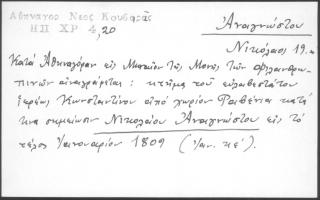 Αθηναγο Νεος Κουβαρᾶς
ΗΠ ΧΡ 4, 20
Ἀναγνώστου
Νικόλαος 19.
Κατά Ἀθηναγόραν εἰς Μηναῖον τῆς Μονῆς τῶν Φιλανθρω-
πινῶν ἀναγράφεται: κτῆμα τοῦ εὐλαβεστάτου
ἱερέως Κωνσταντίνου ἀπό χωρίον Ραιδένια κατά
σημείωσιν Νικολάου Ἀναγνώστου εἰς τό
τέλος Ἰανουαρίου 1809 (Ἰαν. κε').